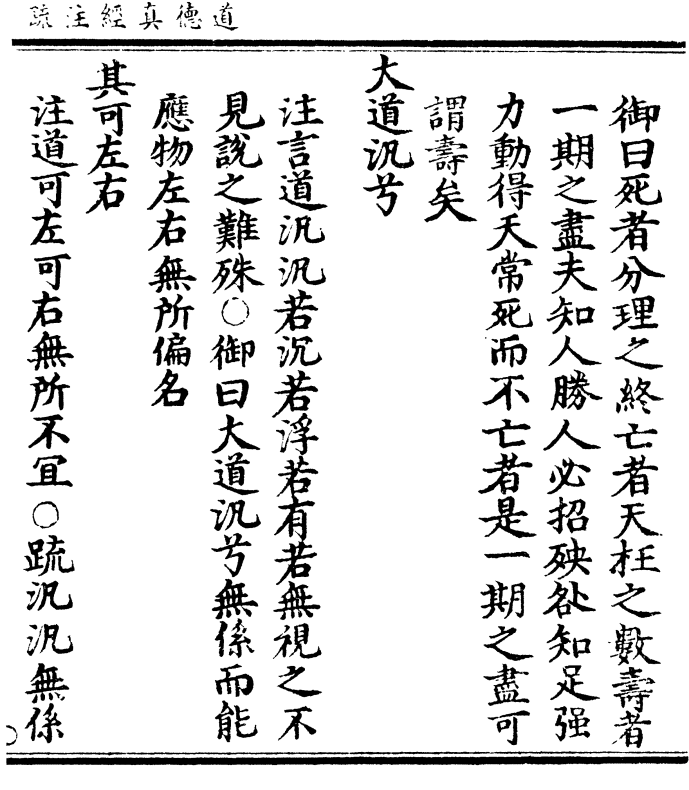 道德真經注疏
御曰死者分理之終亡者天枉之數壽者
一期之盡夫知人勝人必招殃咎知足强
力動得天常死而不亡者是一期之盡可
謂壽矣
大道汎兮
注言道汎汎若沉若浮若有若無視之不
見說之難殊〇御曰大道汎兮無係而能
應物左右無所偏名
其可左右
注道可左可右無所不宜〇䟽汎汎無係